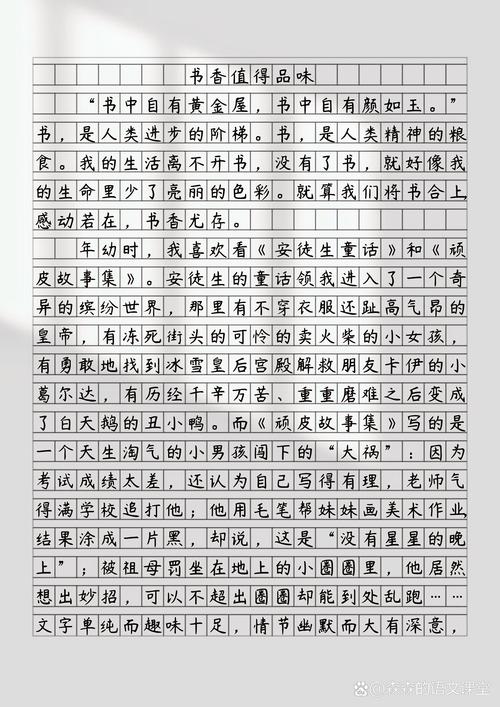 书香值得品味
“书中自有黄金屋，书中自有颜如玉。”
书，是人类进步的阶梯。书，是人类精神的粮
食。我的生活离不开书，没有了书，就好像我
的生命里少了亮丽的色彩。就算我们将书合上，
感动若在，书香尤存。
年幼时，我喜欢看《安徒生童话》和《顽
皮故事集》。安徒生的童话领我进入了一个奇
异的缤纷世界，那里有不穿衣服还趾高气昂的
皇帝，有冻死街头的可怜的卖火柴的小女孩，
有勇敢地找到冰雪皇后宫殿解救朋友卡伊的小
葛尔达，有历经千辛万苦、重重磨难之后变成
了白天鹅的丑小鸭。而《顽皮故事集》写的是
一个天生淘气的小男孩闯下的“大祸”：因为
考试成绩太差，还认为自己写得有理，老师气
得满学校追打他；他用毛笔帮妹妹画美术作业，
结果涂成一片黑，却说，这是“没有星星的晚
上”；被祖母罚坐在地上的小圈圈里，他居然
想出妙招，可以不超出圈圈却能到处乱跑……
文字单纯而趣味十足，情节幽默而大有深意，
百度@森森的语文课堂